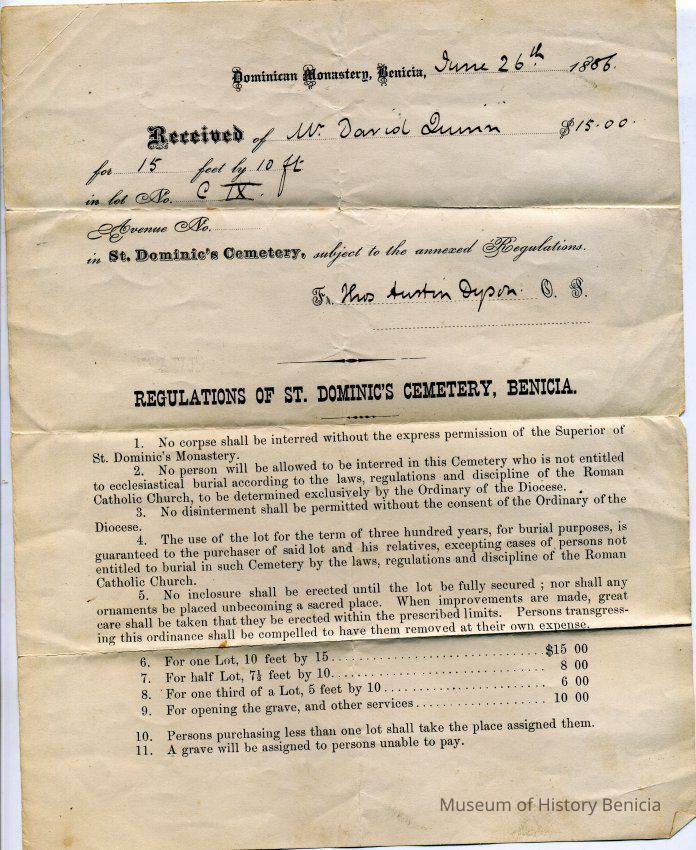 Dominican Monastery, Benicia, June 26th 1886.
Received of Mr David Quinn $15.00
for 15 feet by 10 ft
in lot No. C IX.
Avenue No.
in St. Dominic's Cemetery, subject to the annexed Regulations.
Fr. Thos Austin Dyson. O. P.
REGULATIONS OF ST. DOMINIC'S CEMETERY, BENICIA.
1. No corpse shall be interred without the express permission of the Superior of
St. Dominic's Monastery.
2. No person will be allowed to be interred in this Cemetery who is not entitled
to ecclesiastical burial according to the laws, regulations and discipline of the Roman
Catholic Church, to be determined exclusively by the Ordinary of the Diocese.
3. No disinterment shall be permitted without the consent of the Ordinary of the
Diocese.
4. The use of the lot for the term of three hundred years, for burial purposes, is
guaranteed to the purchaser of said lot and his relatives, excepting cases of persons not
entitled to burial in such Cemetery by the laws, regulations and discipline of the Roman
Catholic Church.
5. No inclosure shall be erected until the lot be fully secured ; nor shall any
ornaments be placed unbecoming a sacred place. When improvements are made, great
care shall be taken that they be erected within the prescribed limits. Persons transgress-
ing this ordinance shall be compelled to have them removed at their own expense.
6. For one Lot, 10 feet by 15 $15 00
7. For half Lot, 7½ feet by 10 8 00
8. For one third of a Lot, 5 feet by 10 6 00
9. For opening the grave, and other services 10 00
10. Persons purchasing less than one lot shall take the place assigned them.
11. A grave will be assigned to persons unable to pay.
Museum of History Benicia